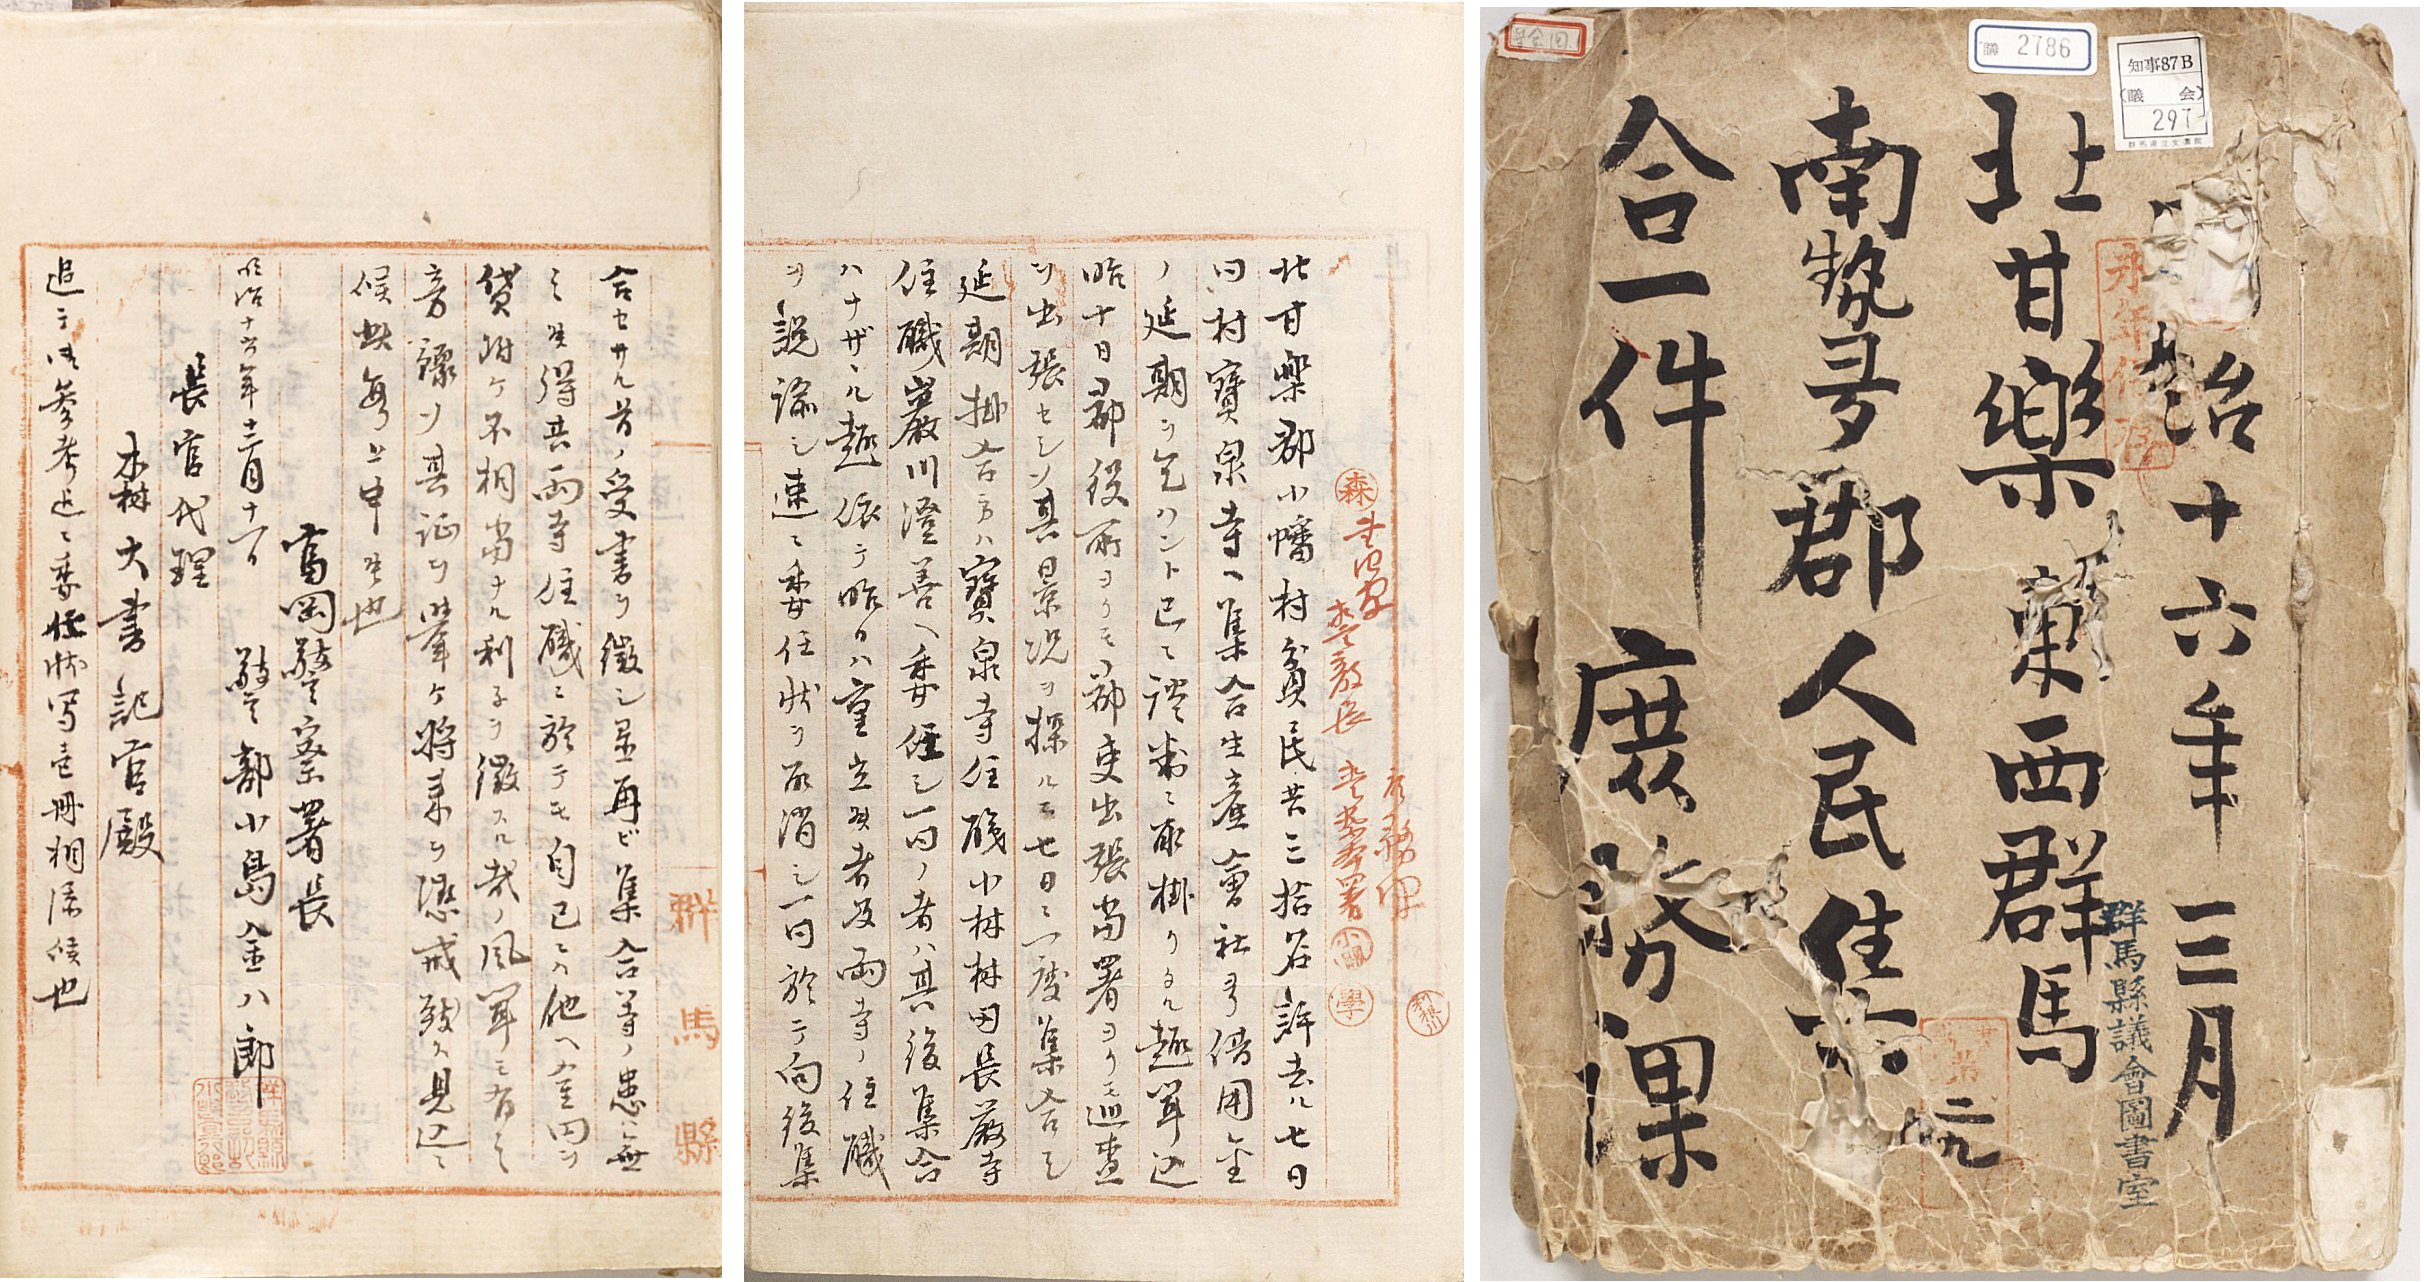 明治十六年三月
北甘樂東西群馬
南勢多郡人民集
合一件 庶務課
元
2786
知事87B
(議会)
297
群馬県立文書館
永年保存
群馬縣議會圖書室
北甘楽郡小幡村貧民共三拾名許去ル七日
同村寳泉寺ヘ集合生産會社ヨリ借用金
ノ延期ヲ乞ハント已ニ談判ニ取掛リタル趣聞込
昨十日郡役所ヨリモ郡吏出張当署ヨリモ巡査
ヲ出張セシメ其景況ヲ探ルニ七日ニ一度集合シ
延期掛合方ハ寳泉寺住職小林村田長厳寺
住職巌川澄善ヘ委任シ一同ノ者ハ其後集合
ハナザヾル趣依テ昨日ハ重立タル者及両寺ノ住職
ヲ説諭シ速ニ委任状ヲ取消シ一同於テ向後集
合セサル旨ノ受書ヲ徴シ置再ビ集合等ノ患ハ無
之候得共両寺住職ニ於テモ自己ニテ他ヘ金円ヲ
貸附ケ不相当ナル利子ヲ徴スル哉ノ風聞モ有之
旁探リ其証ヲ挙ケ将来ヲ懲戒致ス見込ニ
候此段上申候也
明治十六年十二月十一日
富岡警察署長
警部小島金八郎
長官代理
木村大書記官殿
追テ御参考迄ニ委任状写壱冊相添候也
群馬縣